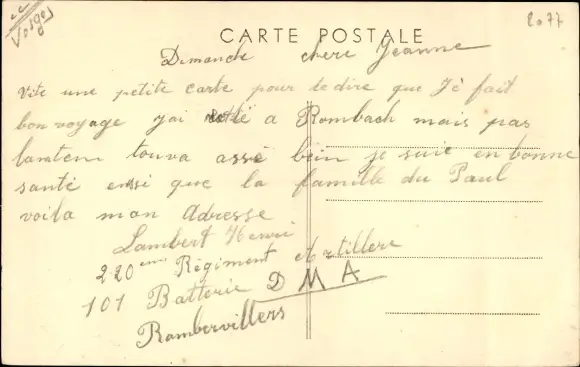 Vosges
2077
CARTE POSTALE
Dimanche chere Jeanne
Vite une petite carte pour te dire que Jé fait
bon voyage j'ai resté a Rombach mais pas
lantem touva assé bein je suie en bonne
santé ensi que la famille du Paul
voila mon Adresse
Lambert Henri
220 eme Régiment Artillere
101 Batterie D M A
Rambervillers